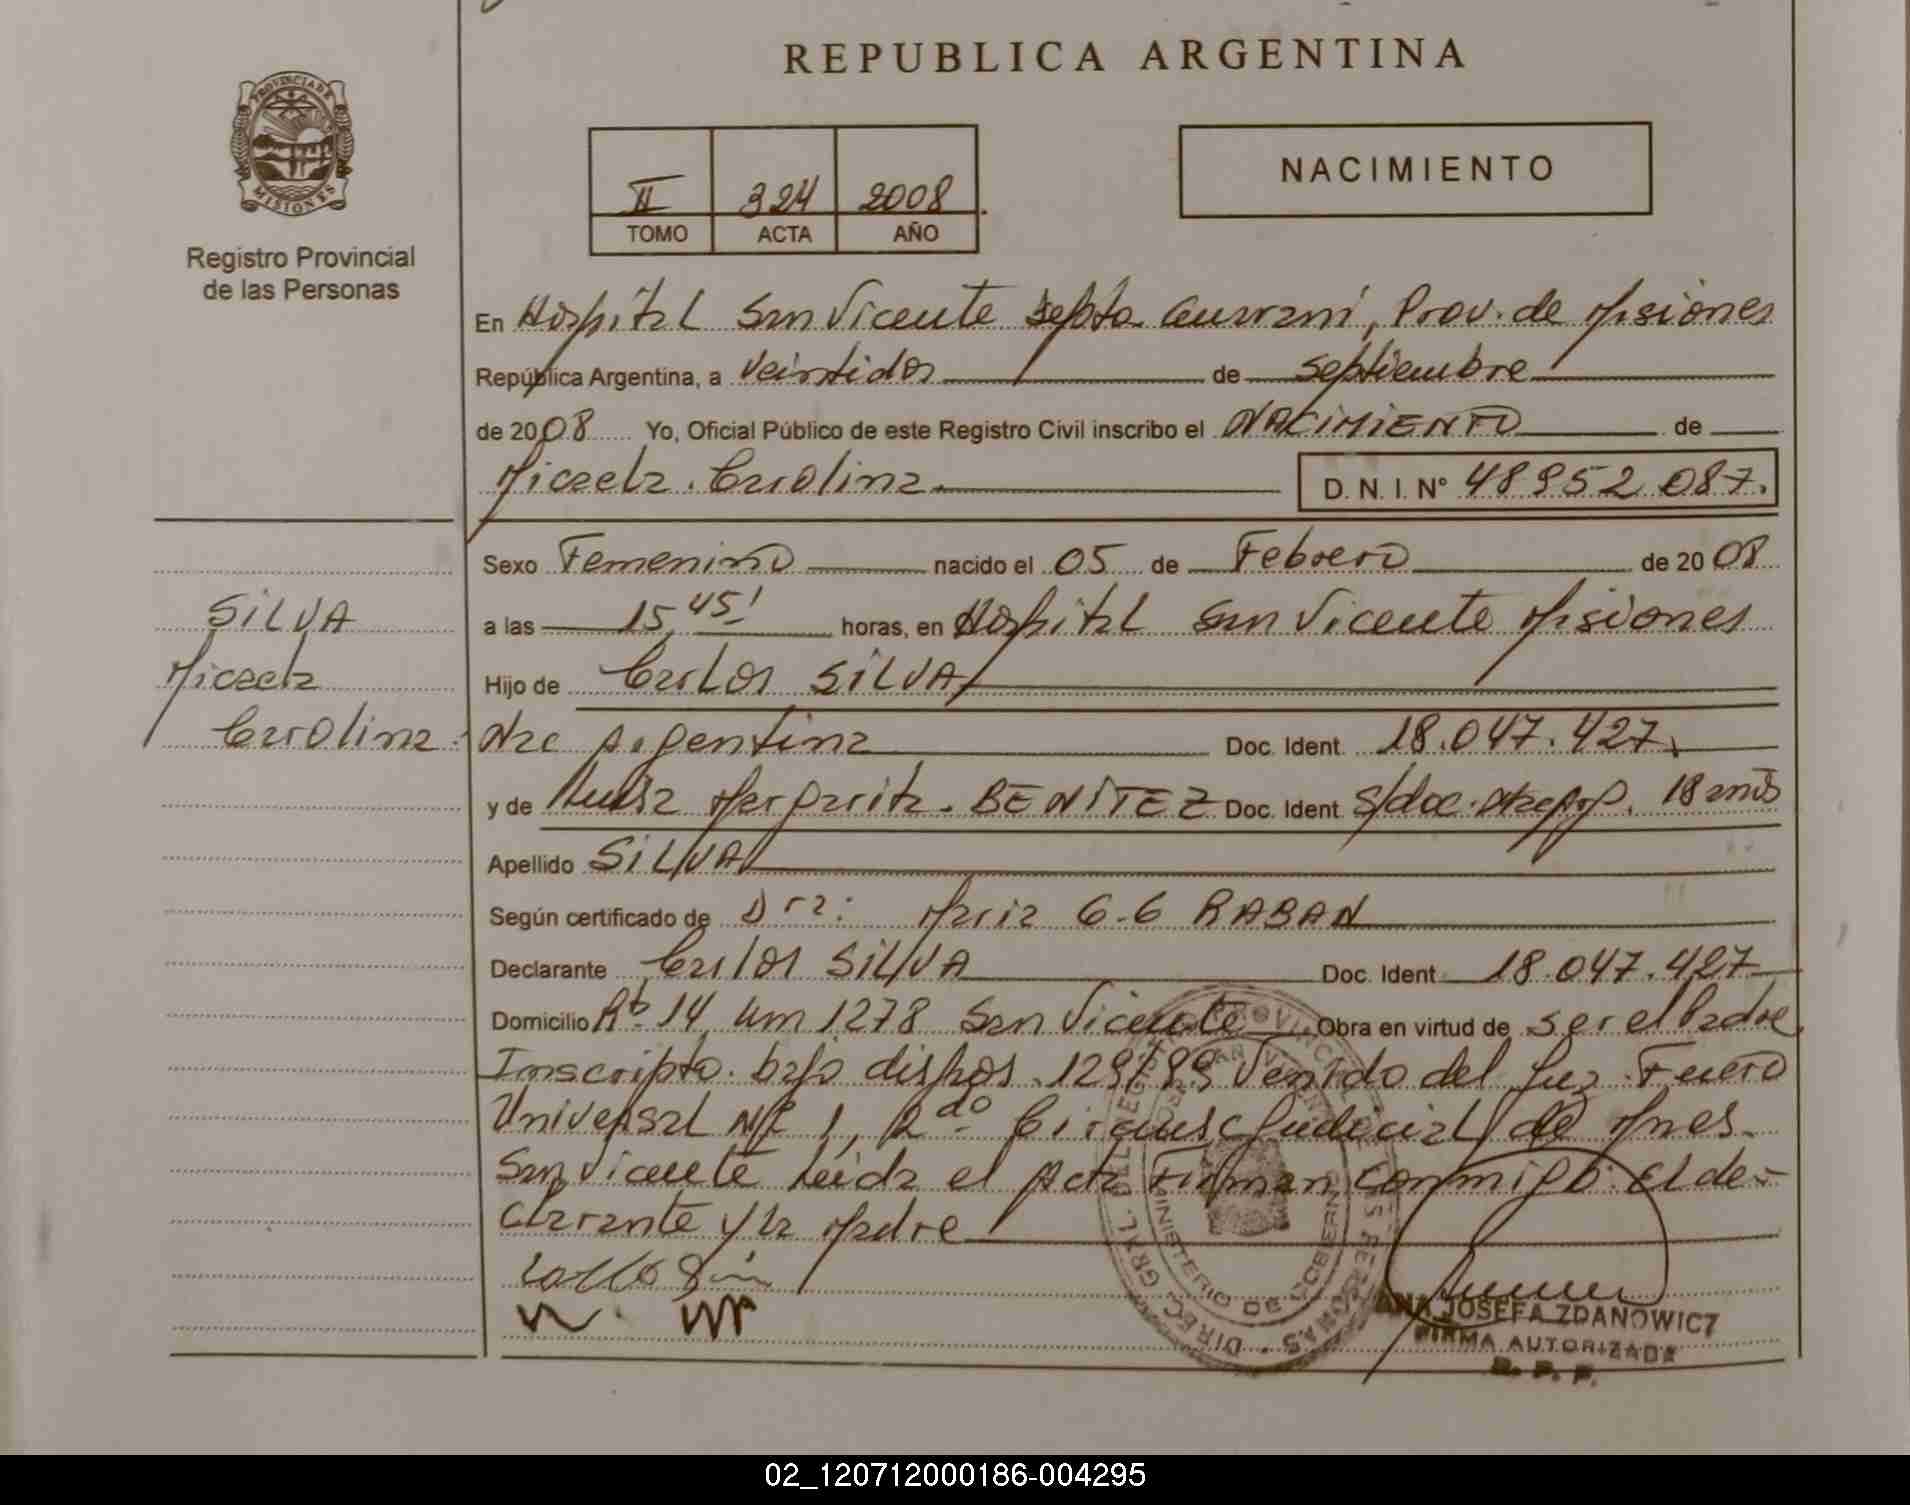 REPUBLICA ARGENTINA
PROVINCIA DE MISIONES
Registro Provincial
de las Personas
II 324 2008
TOMO ACTA AÑO
NACIMIENTO
En Hospital San Vicente Depto. Guarani, Prov. de Misiones
República Argentina, a veintidos de septiembre
de 2008 Yo, Oficial Público de este Registro Civil inscribo el NACIMIENTO de
Micaela Carolina D. N. I. N° 48952 087.
Sexo Femenino nacido el 05 de Febrero de 2008
a las 15,45' horas, en Hospital San Vicente Misiones
Hijo de Carlos SILVA
Nac Argentina Doc. Ident. 18.047.427
y de Luisa Margarita BENITEZ Doc. Ident. s/doc. Nac Arg. 18 años
Apellido SILVA
Según certificado de Dra: Maria G. G RABAN
Declarante Carlos SILVA Doc. Ident. 18.047.427
Domicilio Rta 14 Km 1278 San Vicente Obra en virtud de ser el Padre
Inscripto bajo dispos. 129/89 Venido del Juz. Fuero
Universal Nº 1, 2do. Circunsc Judicial de Mnes.
San Vicente Leida el Acta Firman conmigo: El de-
clarante y la Madre
SILVA
Micaela
Carolina
ANA JOSEFA ZDANOWICZ
FIRMA AUTORIZADA
R. P. P.
DIREC. GRAL. DEL REGISTRO PROVINCIAL DE LAS PERSONAS
MINISTERIO DE GOBIERNO
SAN VICENTE
02_120712000186-004295